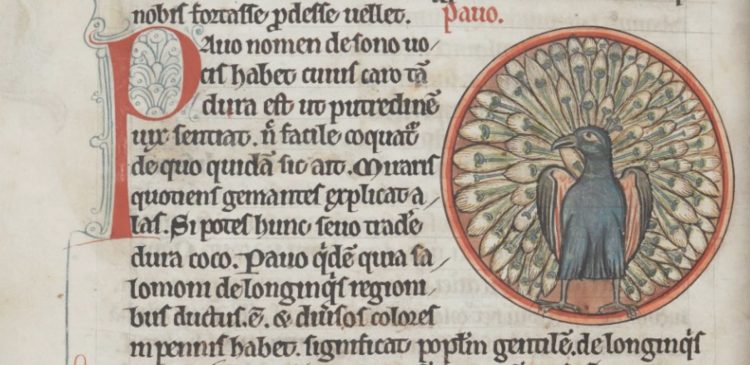 nobis fortasse ꝓdesse uellet. Pauo.
Pauo nomen de sono uo
cis habet cuius caro tā
dura est ut putredinē
uix sentiat. n̄ facile coquat᷑
de quo quidā sic ait. Miraris
quotiens gemantes explicat a
las. Si potes hunc seuo tradē
dura coco. Pauo qͥdē quia sa
lomoni de longinqͥs regioni
bus ductus .ē. & diuͥsos colores
in pennis habet. significat popl̄m gentilē. de longinqͥs